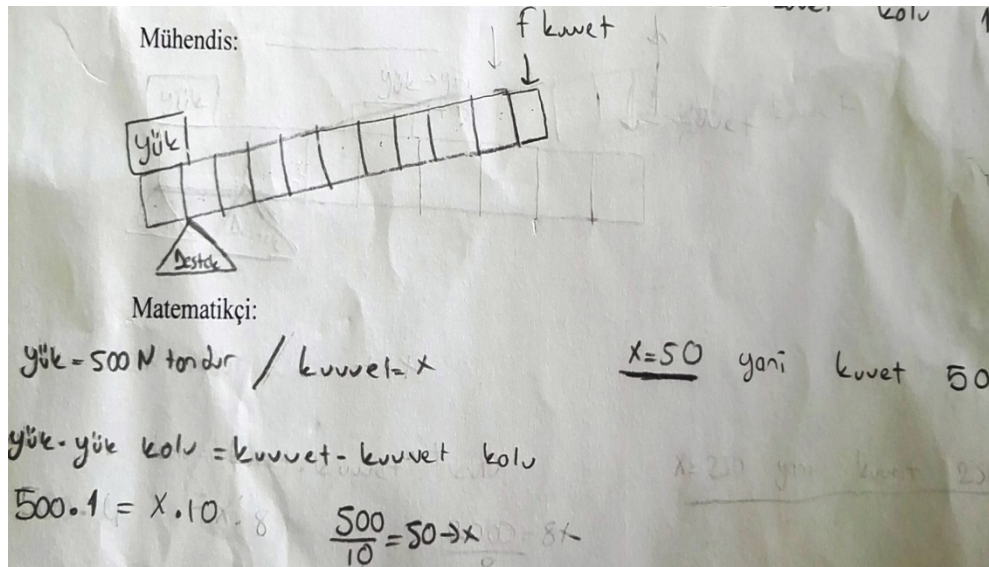 kolu 1
f kuvvet
Mühendis:
yük
Destek
Matematikçi:
yük = 500 N tondur / kuvvet = x
x=50 yani kuvet 50
yük - yük kolu = kuvvet - kuvvet kolu
500.1 = x.10
500/10 = 50 → x